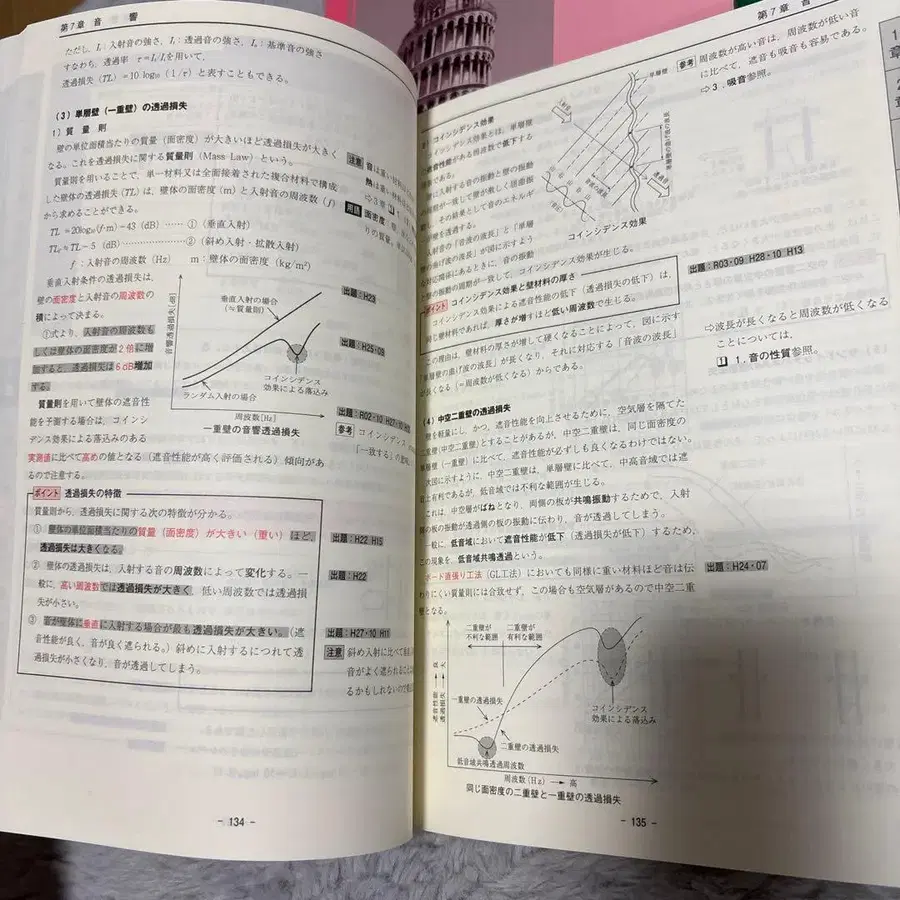 第7章 音 響
ただし，I₁：入射音の強さ，I₂：透過音の強さ，I₀：基準音の強さ
すなわち，透過率 τ=I₂/I₁を用いて，
透過損失（TL）＝10 log₁₀（1/τ）と表すこともできる。
（3）単層壁（一重壁）の透過損失
1）質 量 則
壁の単位面積当たりの質量（面密度）が大きいほど透過損失が大きく
なる。これを透過損失に関する質量則（Mass Law）という。
質量則を用いることで，単一材料又は全面接着された複合材料で構成
した壁体の透過損失（TL）は，壁体の面密度（m）と入射音の周波数（f）
から求めることができる。
TL＝20log₁₀(f·m)－43（dB）……①（垂直入射）
TL₀≒TL－5（dB）……………………②（斜め入射・拡散入射）
f：入射音の周波数（Hz） m：壁体の面密度（kg/m²）
注意 音は重い材料
熱は重い材料
⇨3章
用語 面密度
りの質量。
垂直入射条件の透過損失は，
壁の面密度と入射音の周波数の
積によって決まる。
①式より，入射音の周波数も
しくは壁体の面密度が2倍に増
加すると，透過損失は6dB増加
する。
質量則を用いて壁体の遮音性
能を予測する場合は，コインシ
デンス効果による落込みのある
実測値に比べて高めの値となる（遮音性能が高く評価される）傾向があ
るので注意する。
音響透過損失[dB]
垂直入射の場合
（≒質量則）
コインシデンス
効果による落込み
ランダム入射の場合
周波数[Hz]
一重壁の音響透過損失
出題：H23
出題：H25·09
出題：R02·10 H27·10
参考 コインシデンス
「一致する」
ポイント 透過損失の特徴
質量則から，透過損失に関する次の特徴が分かる。
① 壁体の単位面積当たりの質量（面密度）が大きい（重い）ほど，
透過損失は大きくなる。
② 壁体の透過損失は，入射する音の周波数によって変化する。一
般に，高い周波数では透過損失が大きく，低い周波数では透過損
失が小さい。
③ 音が壁体に垂直に入射する場合が最も透過損失が大きい。（遮
音性能が良く，音が良く遮られる。）斜めに入射するにつれて透
過損失が小さくなり，音が透過してしまう。
出題：H22 H15
出題：H22
出題：H27·10 H11
注意 斜め入射に比べて
音がよく遮られる
るかもしれないので
－ 134 －
第7章 音
コインシデンス効果
コインシデンス効果とは，単層壁
遮音性能がある周波数で低下する
入射する音の振動と壁の振動
の周期が一致して壁が激しく屈曲振
その結果として音のエネルギ
が壁を透過する。
入射音の「音波の波長」と「単層
壁の曲げ波の波長」が図に示すよう
な対応関係にあるときに，音の振動
と壁の振動の周期が一致して，コインシデンス効果が生じる。
単層壁
入射音
単層壁の曲げ波の波長
音波の波長
透過音
コインシデンス効果
参考 周波数が高い音は，周波数が低い音
に比べて，遮音も吸音も容易である。
⇨3．吸音参照。
ポイント コインシデンス効果と壁材料の厚さ
コインシデンス効果による遮音性能の低下（透過損失の低下）は，
同じ壁材料であれば，厚さが増すほど低い周波数で生じる。
出題：R03·09 H28·10 H13
この理由は，壁材料の厚さが増して硬くなることによって，図に示す
「単層壁の曲げ波の波長」が長くなり，それに対応する「音波の波長」
が長くなる（＝周波数が低くなる）からである。
⇨波長が長くなると周波数が低くなる
ことについては，
1．音の性質参照。
（4）中空二重壁の透過損失
壁を軽量にし，かつ，遮音性能を向上させるために，空気層を隔てた
二重壁（中空二重壁）とすることがあるが，中空二重壁は，同じ面密度の
単層壁（一重壁）に比べて，遮音性能が必ずしも良くなるわけではない。
次図に示すように，中空二重壁は，単層壁に比べて，中高音域では遮
音上有利であるが，低音域では不利な範囲が生じる。
これは，中空層がばねとなり，両側の板が共鳴振動するためで，入射
側の板の振動が透過側の板の振動に伝わり，音が透過してしまう。
一般に，低音域において遮音性能が低下（透過損失が低下）するため，
この現象を，低音域共鳴透過という。
ボード直張り工法（GL工法）においても同様に重い材料ほど音は伝
わりにくい質量則には合致せず，この場合も空気層があるので中空二重
壁となる。
出題：H24·07
二重壁が
不利な範囲
二重壁が
有利な範囲
遮音性能 良
透過損失 大
一重壁の透過損失
二重壁の透過損失
コインシデンス
効果による落込み
低音域共鳴透過周波数
周波数（Hz）→ 高
同じ面密度の二重壁と一重壁の透過損失
－ 135 －